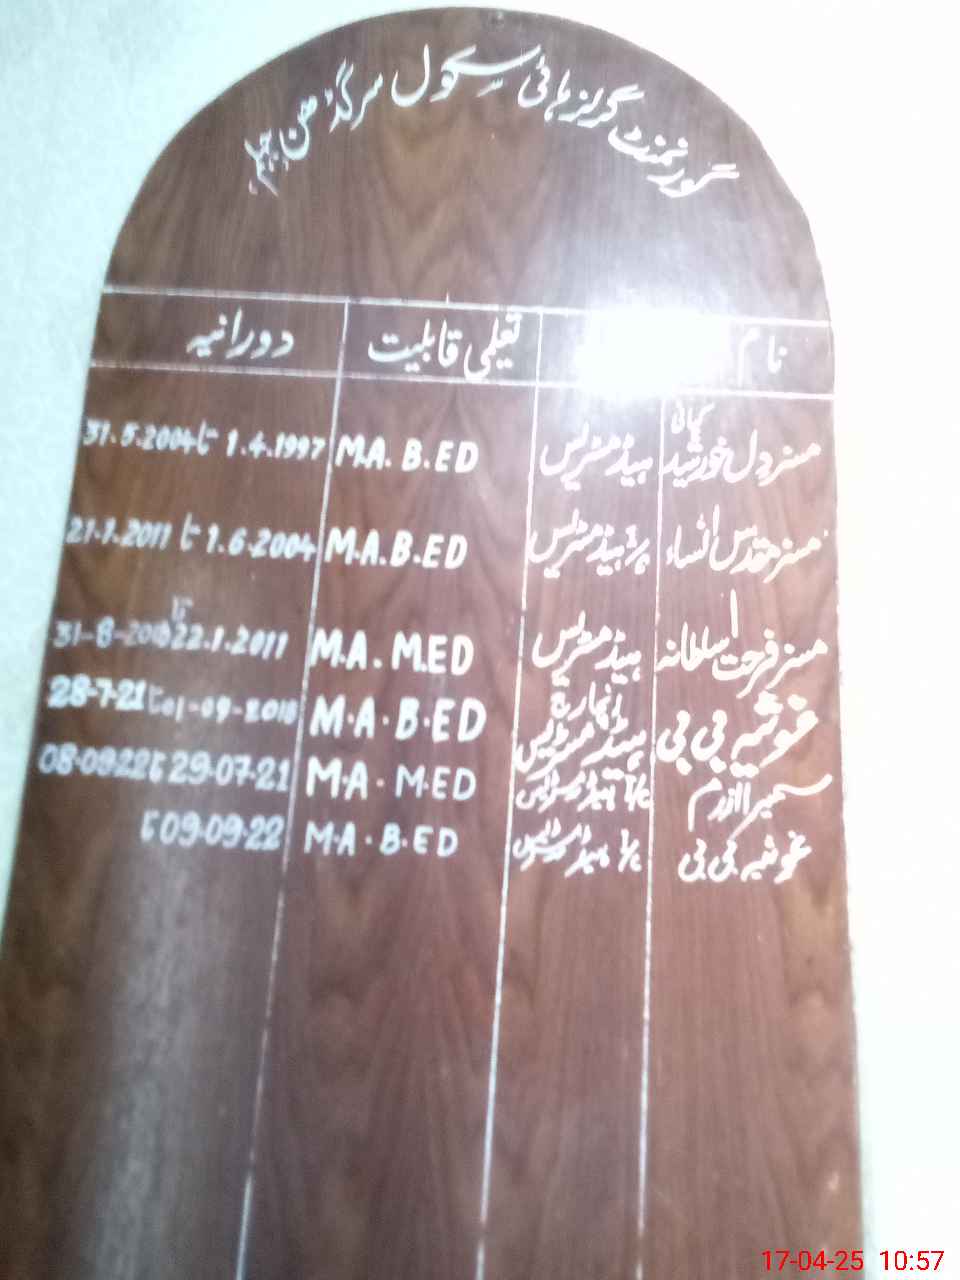 گورنمنٹ گرلز ہائی سکول سرگڈھن جہلم
نام تعلیمی قابلیت دورانیہ
مسز دل خورشید کیانی ہیڈمسٹریس M.A. B.ED 1.4.1997 تا 31.5.2004
مسز مقدس النساء ہیڈمسٹریس M.A.B.ED 1.6.2004 تا 21.1.2011
مسز فرحت سلطانہ ہیڈمسٹریس M.A. M.ED 22.1.2011 تا
غوثیہ بی بی انچارج ہیڈمسٹریس M.A.B.ED 01-09-2018 تا 28-7-21
سمیرا اکرم ہیڈمسٹریس M.A. M.ED 29-07-21 تا 08-09-22
غوثیہ بی بی ہیڈمسٹریس M.A.B.ED 09-09-22 تا
17-04-25 10:57